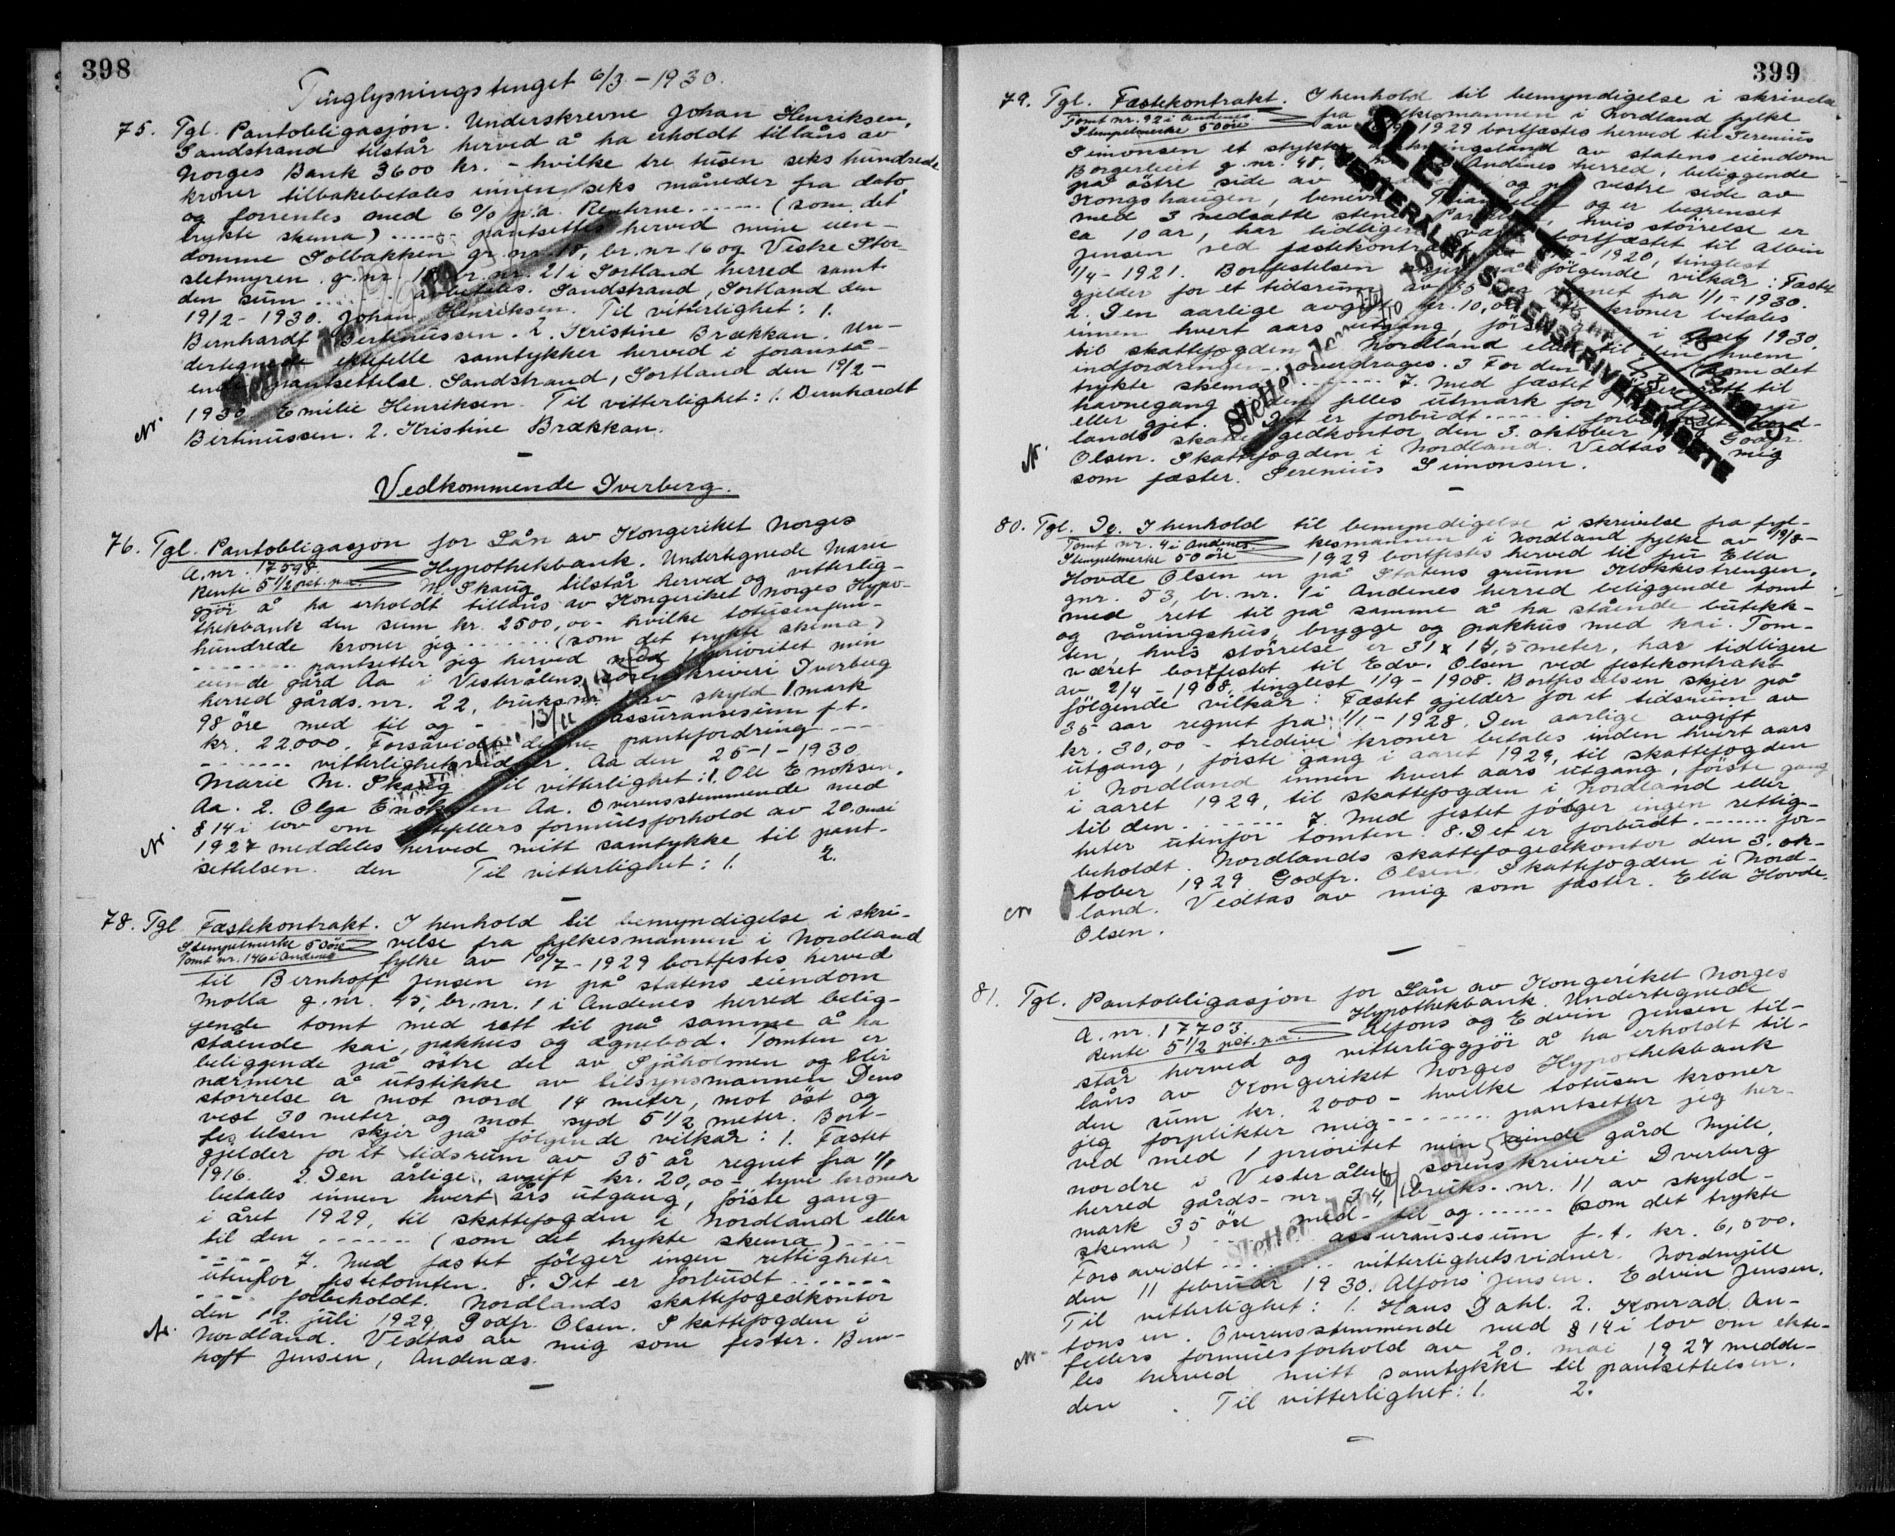 398
Tinglysningstinget 6/3 - 1930.
75. Tgl. Pantobligasjon. Underskrevne Johan Henriksen,
Sandstrand tilstår herved å ha erholdt tillåns av
Norges Bank 3600 kr. - hvilke tre tusen seks hundrede
kroner tilbakebetales innen seks måneder fra dato
og forrentes med 6% p.a. Renterne ...... (som det
trykte skema) ...... pantsettes herved mine eien-
domme Solbakken gr. nr. 18, br. nr. 16 og Vestre Stor
sletmyren g. nr. br. nr. 21 i Sortland herred samt
den sum ...... Sandstrand, Sortland den
19/2 - 1930. Johan Henriksen. Til vitterlighet: 1.
Bernhardt Bertinussen. 2. Kristine Brækkan. Un-
dertegnede ektefelle samtykker herved i foranstå-
ende pantsettelse. Sandstrand, Sortland den 19/2 -
1930. Emilie Henriksen. Til vitterlighet: 1. Bernhardt
Nr. Bertinussen. 2. Kristine Brækkan.
Vedkommende Dverberg.
76. Tgl. Pantobligasjon for Lån av Kongeriket Norges
A. nr. 17598. Hypothekbank. Undertegnede Marie
Rente 5 1/2 pct. p.a. M. Skaug tilstår herved og vitterlig-
gjör å ha erholdt tillåns av Kongeriket Norges Hypo-
thekbank den sum kr. 2500,00 - hvilke totusenfem-
hundrede kroner jeg ...... (som det trykte skema)
........ pantsetter jeg herved med 1 prioritet min
eiende gård Aa i Vesterålens sorenskriveri Dverberg
herred gårds. nr. 22, bruksnr. av skyld 1 mark
98 öre med til og - - 13/11 assuransesum f.t.
kr. 22000. Forsåvidt denne pantefordring - - -
....... vitterlighetsvidner. Aa den 25-1-1930.
Marie M. Skaug Til vitterlighet: 1. Ole Enoksen,
Aa. 2. Olga Enoksen Aa. Overensstemmende med
§ 14 i lov om ektefellers formuesforhold av 20. mai
Nr. 1927 meddeles herved mitt samtykke til pant-
settelsen. den Til vitterlighet: 1. 2.
78. Tgl. Fæstekontrakt. I henhold til bemyndigelse i skri-
Stempelmerke 50 öre velse fra fylkesmannen i Nordland
Tomt nr. 146 i Andenes fylke av 10/7 - 1929 bortfestes herved
til Bernhoff Jensen en på statens eiendom
Molla g. nr. 45, br. nr. 1 i Andenes herred belig-
gende tomt med rett til på samme å ha
stående kai, pakhus og egnebod. Tomten er
beliggende på östre del av Sjåholmen og blir
nærmere å utstikke av tilsynsmannen Dens
störrelse er mot nord 14 meter, mot öst og
vest 30 meter og mot syd 5 1/2 meter. Bort-
festelsen skjer på følgende vilkår: 1. Fæstet
gjelder for et tidsrum av 35 år regnet fra 1/1
1916. 2. Den årlige avgift kr. 20,00 - tyve kroner
betales innen hvert års utgang, förste gang
i året 1929, til skattefogden i Nordland eller
til den ....... (som det trykte skema) ....
..... 7. Med fæstet fölger ingen rettigheter
utenfor festetomten. 8. Det er forbudt .......
.... forbeholdt. Nordlands skattefogedkontor
den 12. juli 1929. Godfr. Olsen. Skattefogden i
Nr. Nordland. Vedtas av mig som fester. Bern-
hoft Jensen, Andenæs.
399
79. Tgl. Fæstekontrakt. I henhold til bemyndigelse i skrivelse
Tomt nr. 92 i Andenes fra fylkesmannen i Nordland fylke
Stempelmerke 50 öre av 1929 bortfæstes herved til Serenius
Simonsen et stykke av statens eiendom
Borgerleiet g. nr. 48, Andenes herred, beliggende
på östre side av og på vestre side av
Kongshaugen, og er begrenset
med 3 nedsatte stener hvis störrelse er
ca 10 ar, har tidligere været bortfæstet til Albin
Jensen ved fæstekontrakt 1920, tinglest
1/4 - 1921. Bortfestelsen på følgende vilkår: Fæstet
gjelder for et tidsrum av 35 regnet fra 1/1 - 1930.
2. Den aarlige avgift kr. 10,00 kroner betales
innen hvert aars utgang, förste gang i aaret 1930.
til skattefogden Nordland eller til den hvem
indfordringen overdrages. 3. For den (som det
trykte skema) ........ 7. Med fæstet til
havnegang felles utmark for
eller gjet. 8. Det er forbudt ..... forbeholdt. Nord-
lands skattefogedkontor den 3. oktober Godfr.
Nr. Olsen. Skattefogden i Nordland. Vedtas mig
som fæster. Serenius Simonsen.
SLETTET
VESTERÅLEN SORENSKRIVEREMBETE
80. Tgl. Do. I henhold til bemyndigelse i skrivelse fra fyl-
Tomt nr. 4 i Andenes. kesmannen i Nordland fylke av 19/8 -
Stempelmerke 50 öre 1929 bortfestes herved til fru Ella
Hovde Olsen en på Statens grunn Klokkestrengen,
gnr. 53, br. nr. 1 i Andenes herred beliggende tomt
med rett til på samme å ha stående butikk-
og våningshus, brygge og pakhus med kai. Tom-
ten, hvis störrelse er 31 x 14,5 meter, har tidligere
været bortfestet til Edv. Olsen ved festekontrakt
av 2/4 - 1908, tinglest 1/9 - 1908. Bortfestelsen skjer på
følgende vilkår: Fæstet gjelder for et tidsrum av
35 aar regnet fra 1/1 - 1928. Den aarlige avgift
kr. 30,00 - tredive kroner betales inden hvert aars
utgang, förste gang i aaret 1929, til skattefogden
i Nordland innen hvert aars utgang, förste gang
i aaret 1929, til skattefogden i Nordland eller
til den ....... 7. Med festet fölger ingen rettig-
heter utenfor tomten. 8. Det er forbudt ....... for-
beholdt. Nordlands skattefogedkontor den 3. ok-
tober 1929 Godfr. Olsen. Skattefogden i Nord-
Nr land. Vedtas av mig som fæster. Ella Hovde
Olsen.
81. Tgl. Pantobligasjon for Lån av Kongeriket Norges
A. nr. 17703. Hypothekbank. Undertegnede
Rente 5 1/2 pct. p.a. Alfons og Edvin Jensen til-
står herved og vitterliggjör å ha erholdt til-
låns av Kongeriket Norges Hypothekbank
den sum kr. 2000 - hvilke totusen kroner
jeg forplikter mig ........ pantsetter jeg her-
ved med 1 prioritet min eiende gård Myile,
nordre i Vesterålens sorenskriveri Dverberg
herred gårds- nr. 34, bruks. nr. 11 av skyld-
mark 35 öre med - til og ...... (som det trykte
skema) ...... assuransesum f.t. kr. 6,000.
Forsavidt ........ vitterlighetsvidner. Nordmyile
den 11 februar 1930. Alfons Jensen. Edvin Jensen.
Til vitterlighet: 1. Hans Dahl. 2. Konrad An-
tonsen. Overensstemmende med § 14 i lov om ekte-
Nr. fellers formuesforhold av 20. mai 1927 medde-
les herved mitt samtykke til pantsettelsen.
den . Til vitterlighet: 1. 2.